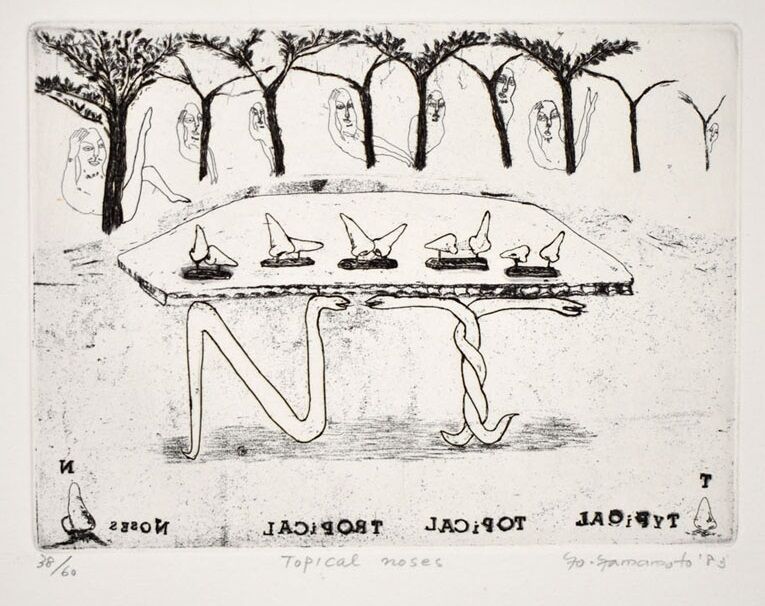 T N
TYPiCAL TOPiCAL TROPiCAL NOSES
38/60 Topical noses Yo. Yamamoto